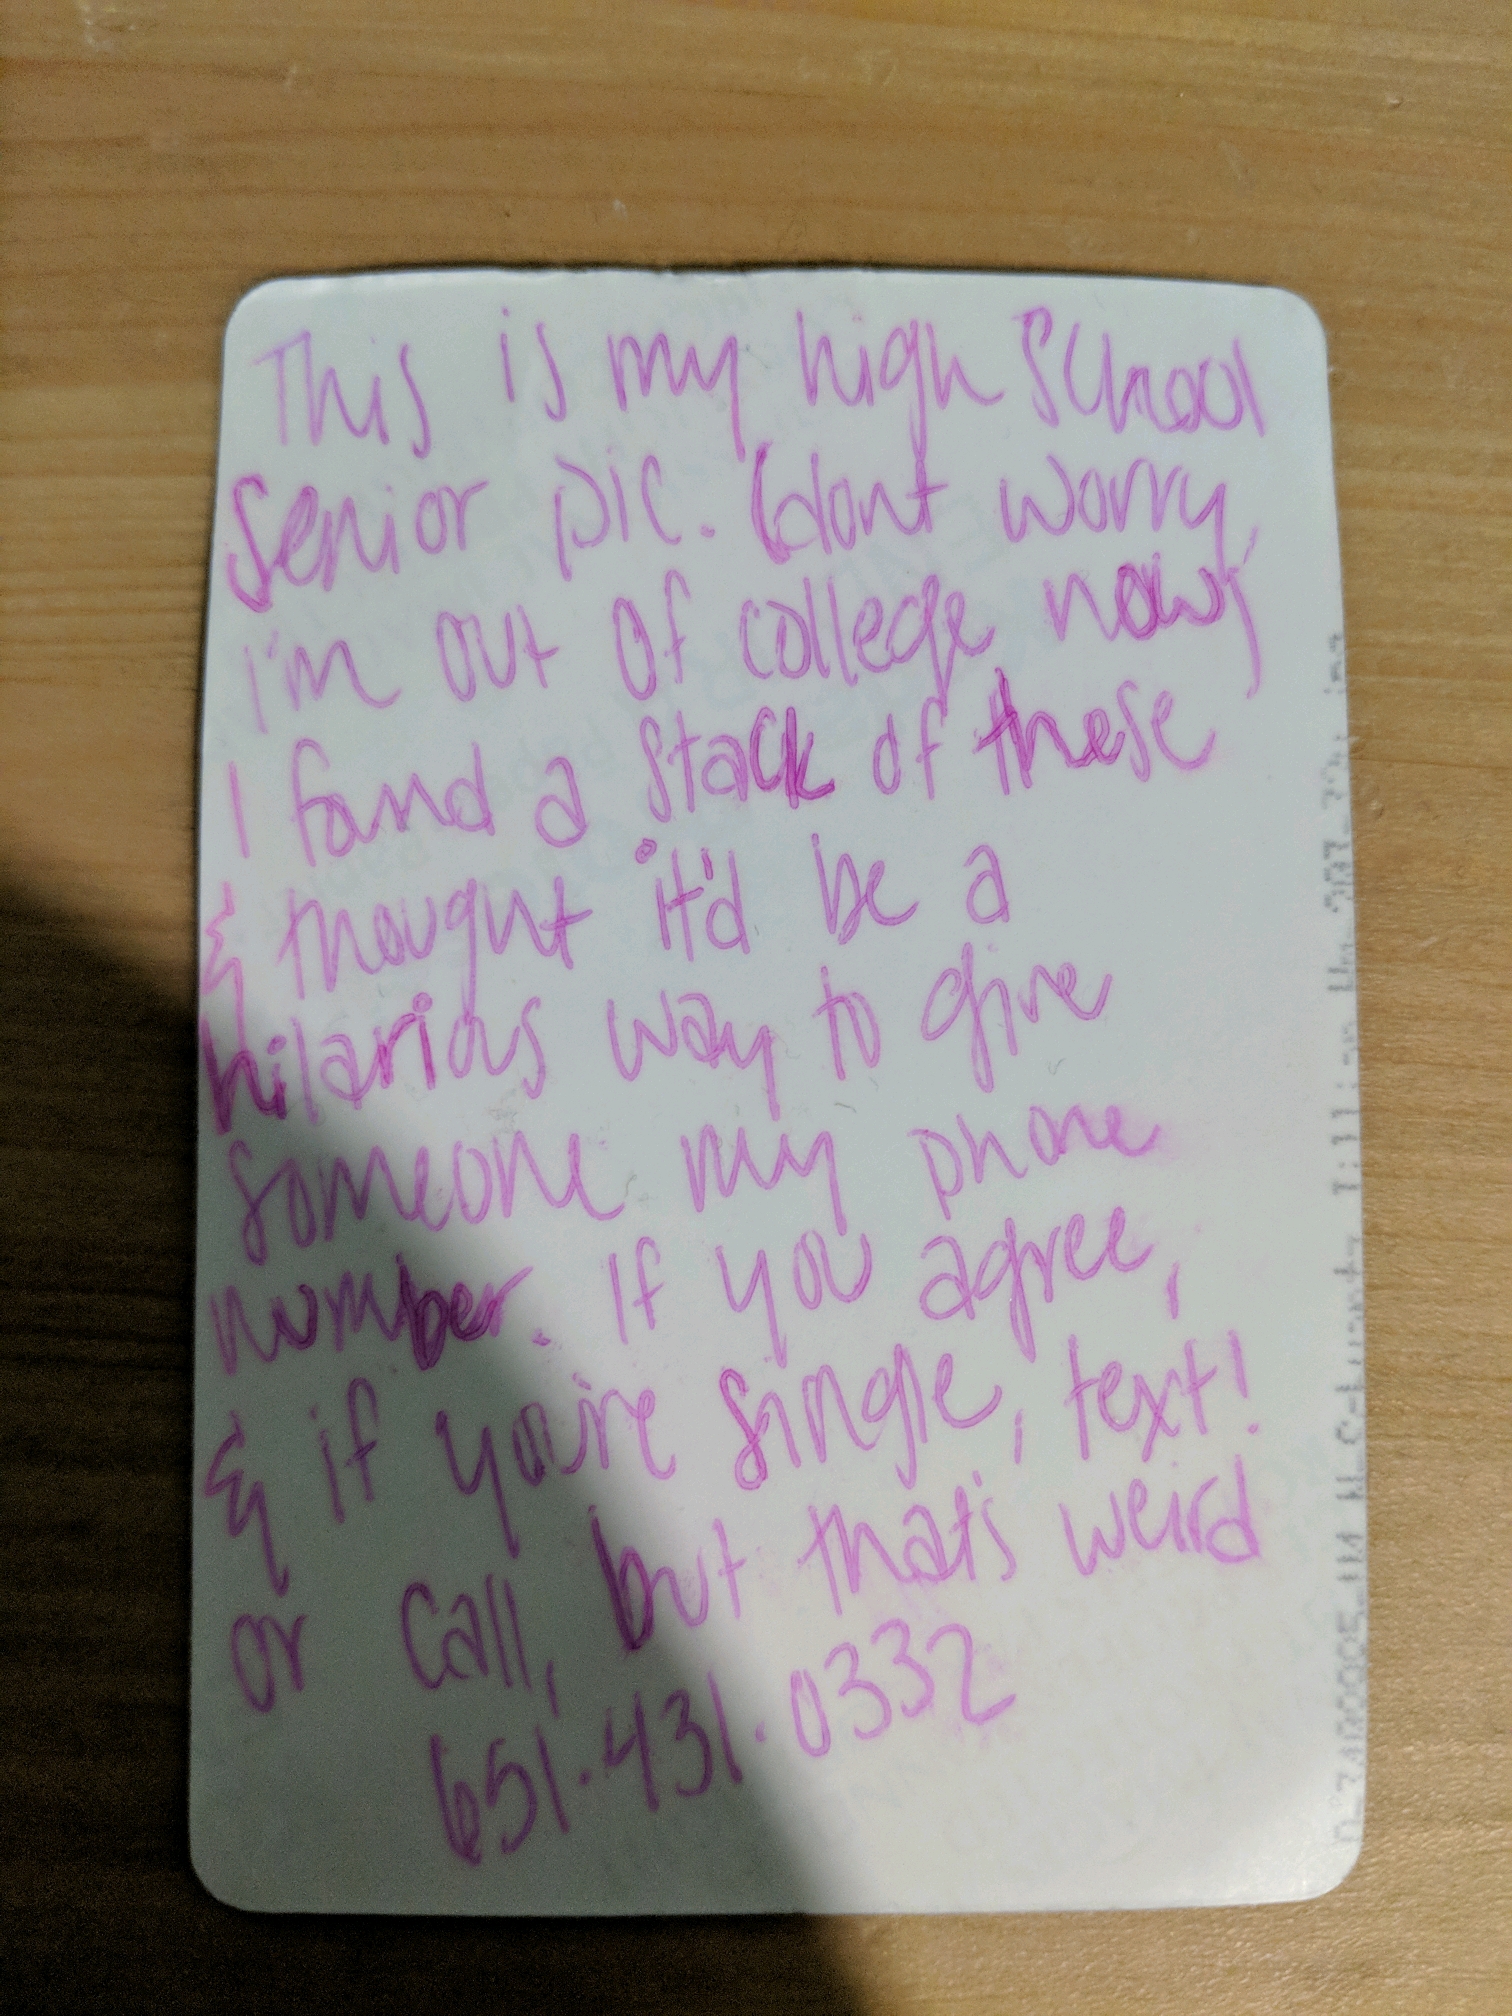 This is my high school
senior pic. (dont worry,
i'm out of college now)
I found a stack of these
& thought it'd be a
hilarious way to give
someone my phone
number. If you agree,
& if you're single, text!
or call, but that's weird
651.431.0332